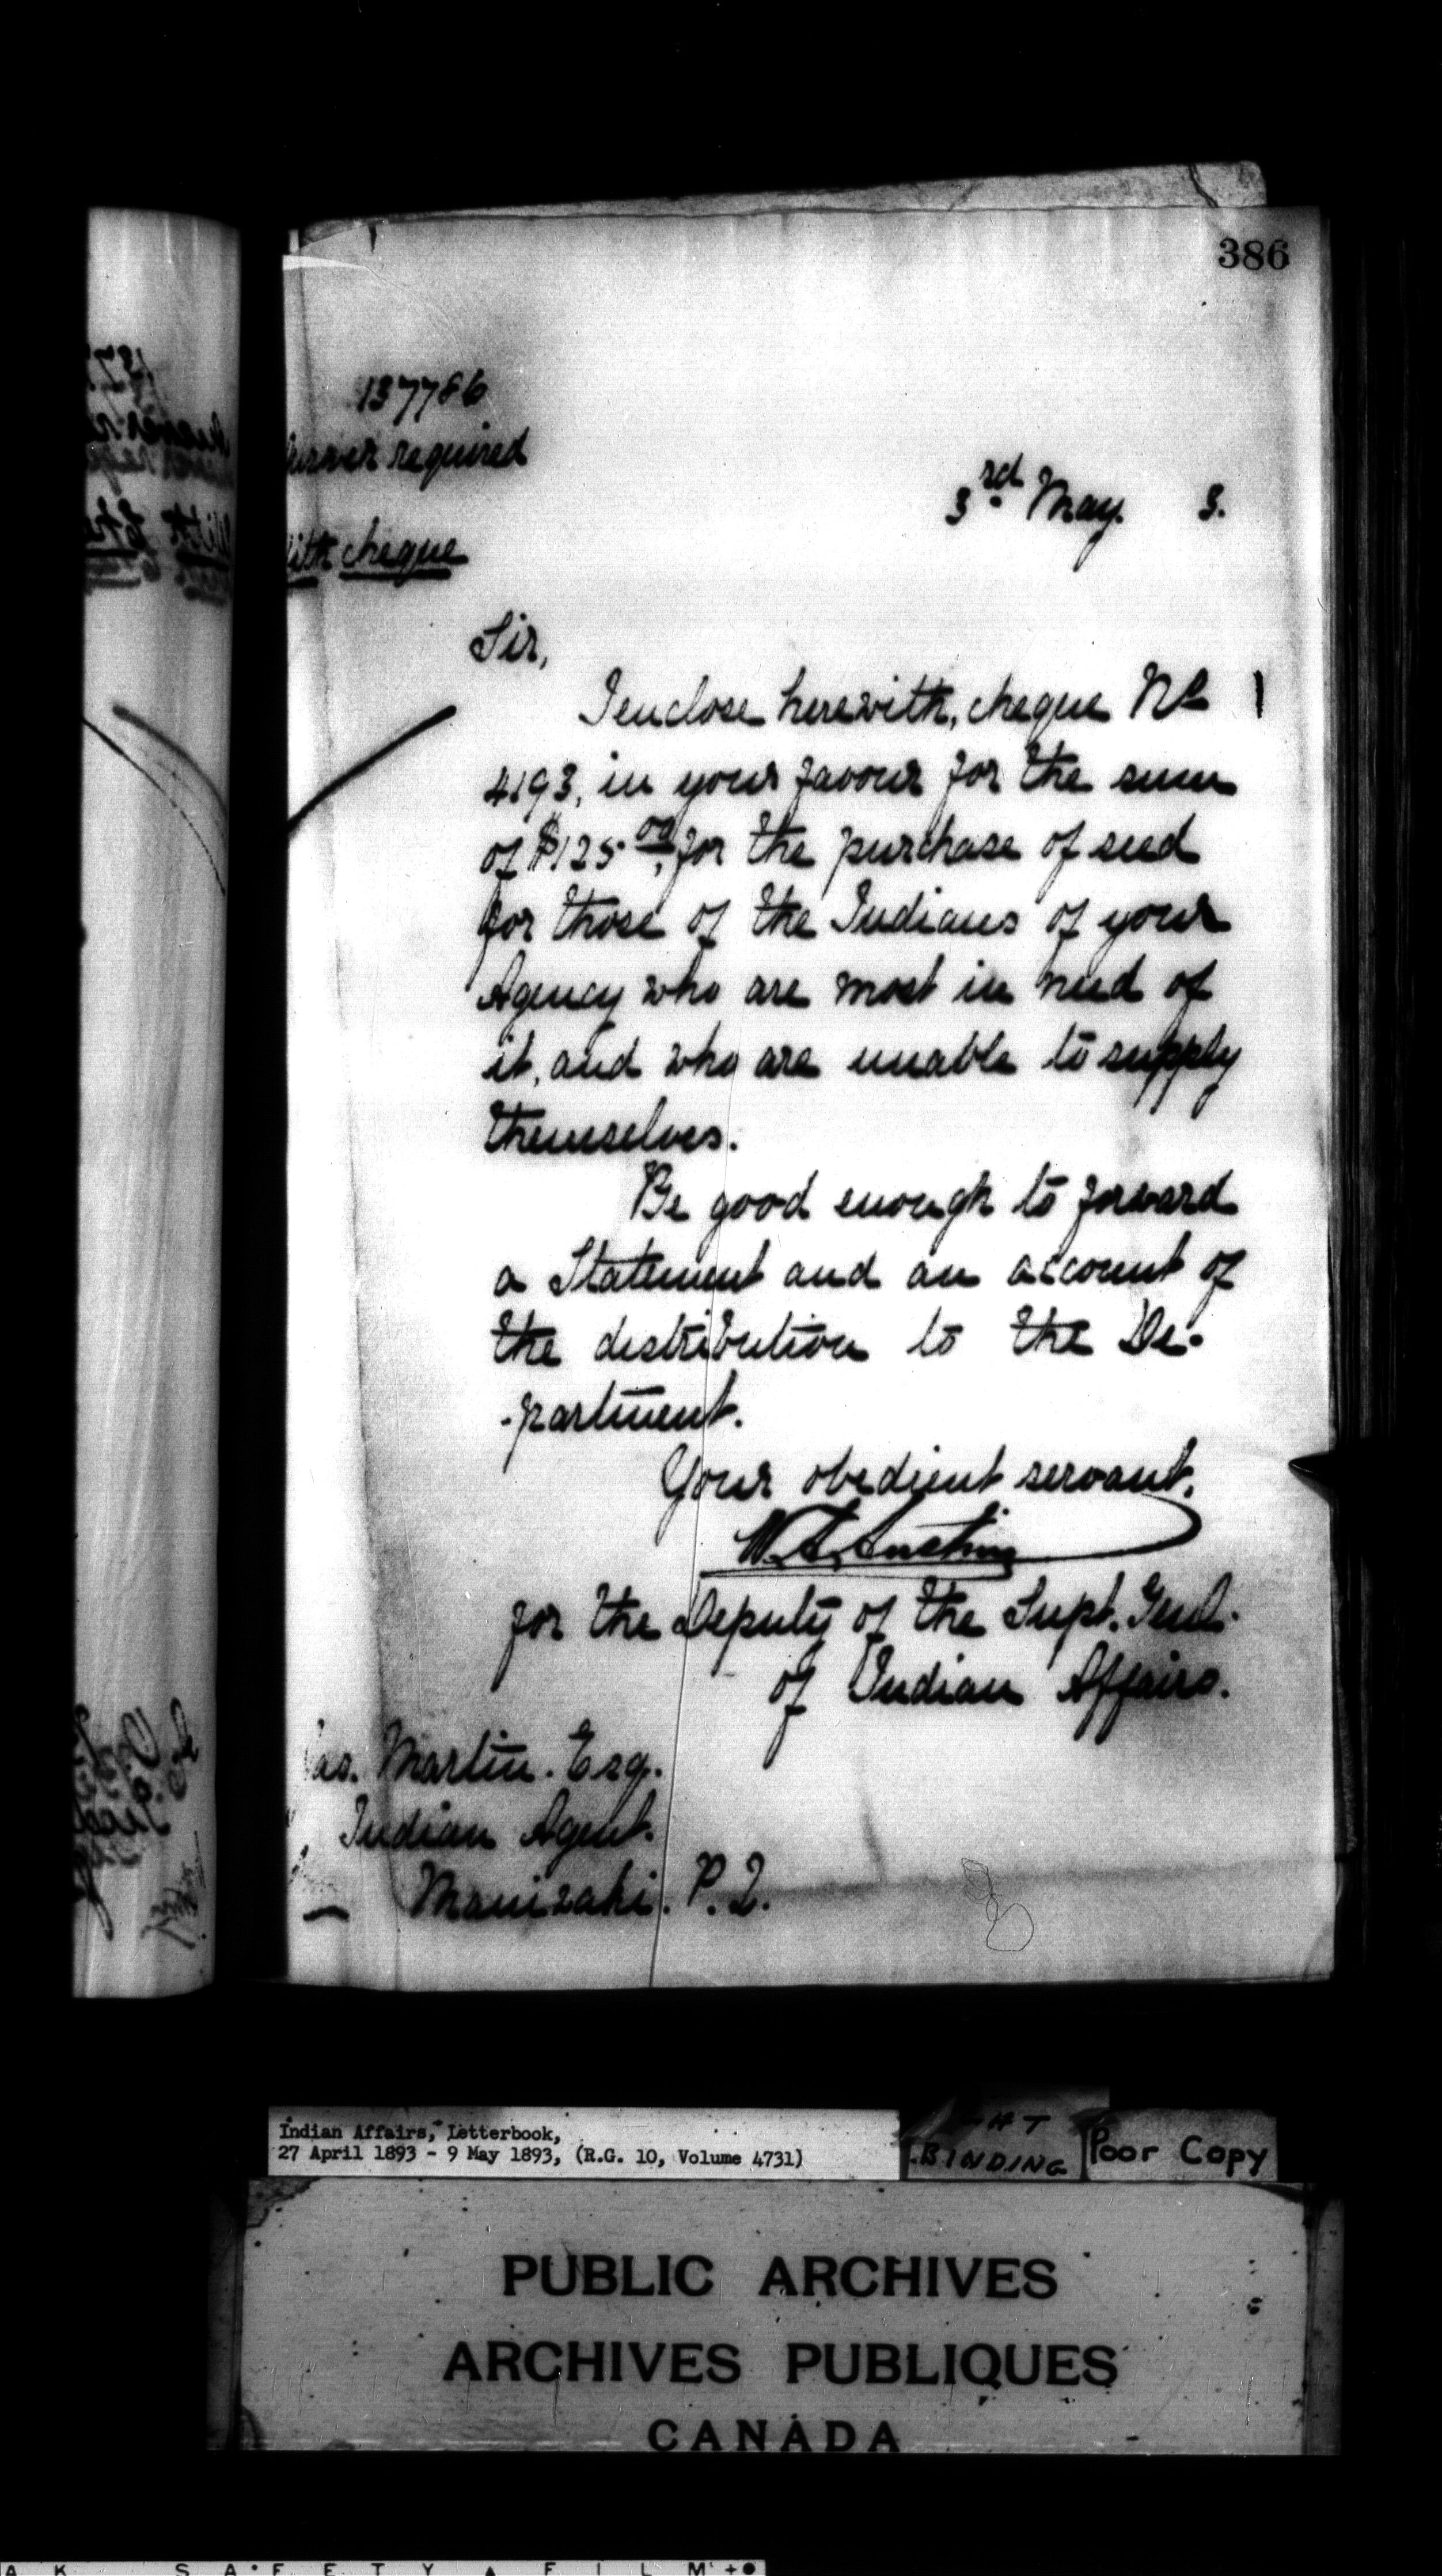 386
137786
Answer required
With cheque
3rd May. 3.
Sir,
I enclose herewith, cheque No
4193, in your favour for the sum
of $125.00, for the purchase of seed
for those of the Indians of your
Agency who are most in need of
it, and who are unable to supply
themselves.
Be good enough to forward
a Statement and an account of
the distribution to the De-
-partment.
Your obedient servant,
W. A. Austin
for the Deputy of the Supt. Genl.
of Indian Affairs.
Jas. Martin. Esq.
Indian Agent.
Maniwaki. P.Q.
Indian Affairs, Letterbook,
27 April 1893 - 9 May 1893, (R.G. 10, Volume 4731)
BINDING
Poor Copy
PUBLIC ARCHIVES
ARCHIVES PUBLIQUES
CANADA
A K SAFETY FILM